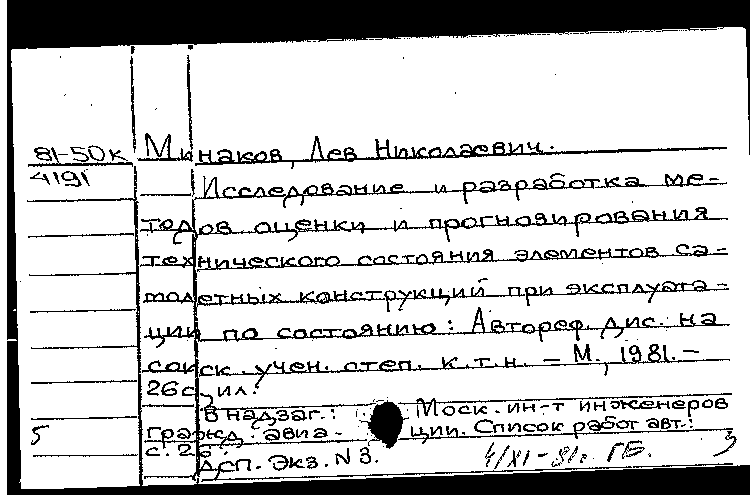 81-50к Минаков, Лев Николаевич.
4191 Исследование и разработка ме-
тодов оценки и прогнозирования
технического состояния элементов са-
молетных конструкций при эксплуата-
ции по состоянию: Автореф. дис. на
соиск. учен. степ. к.т.н. – М., 1981. –
26 с., ил.
В надзаг.: Моск. ин-т инженеров
5 гражд. авиа- ции. Список работ авт.:
с. 26.
ДСП. Экз. N 3. 4/XI-81г. ГБ.